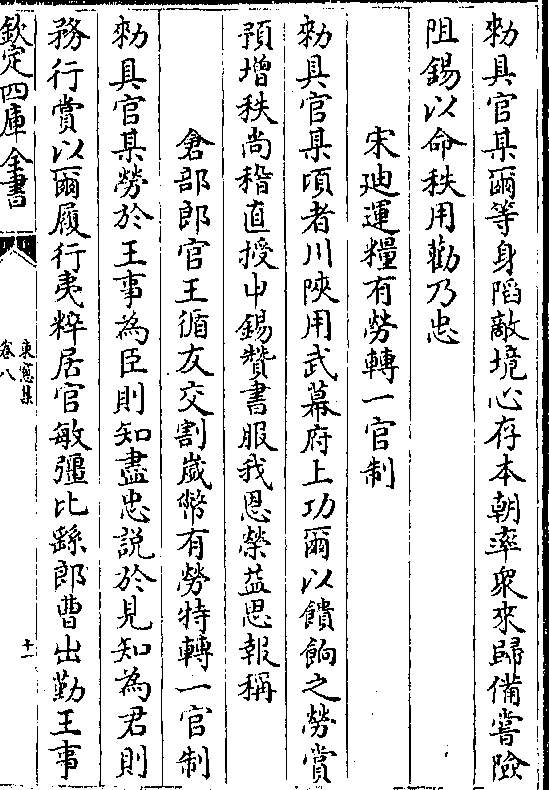 勅具官某爾等身陷敵境心存本朝率衆來歸備嘗險
阻錫以命秩用勸乃忠
宋廸運糧有勞轉一官制
勅具官某頃者川陜用武幕府上功爾以饋餉之勞賞
預增秩尚稽直授申錫贊書服我恩榮益思報稱
倉部郎官王循友交割歲幣有勞特轉一官制
勅具官某勞於王事為臣則知盡忠説於見知為君則
務行賞以爾履行夷粹居官敏彊比繇郎曹出勤王事
欽定四庫全書
東窻集
卷八
十一